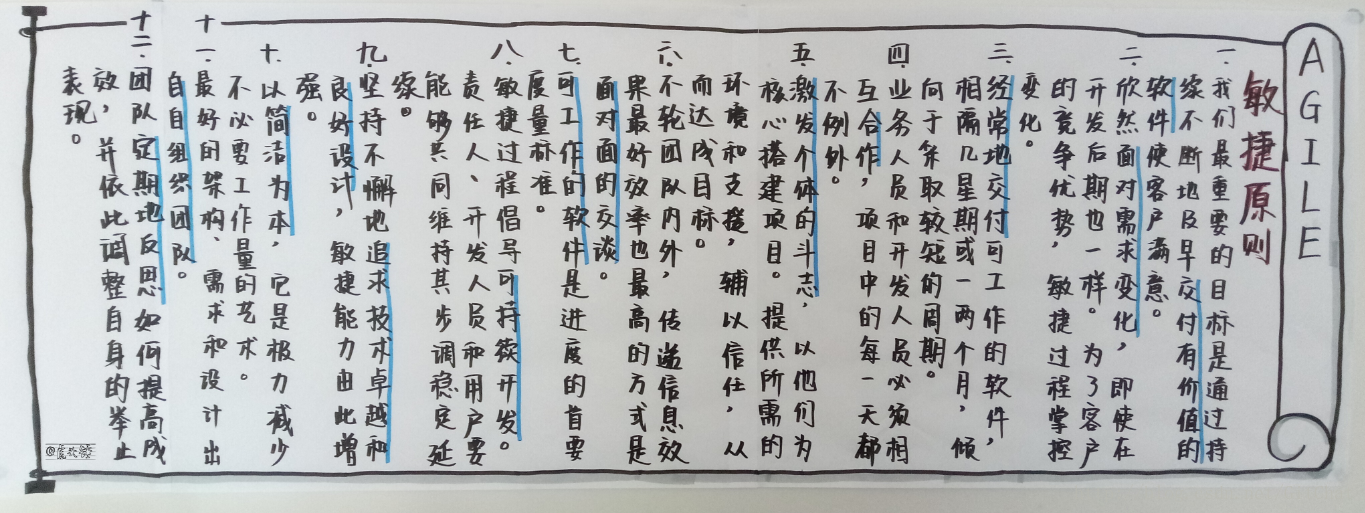 AGILE
敏捷原则
一.我们最重要的目标是通过持
续不断地及早交付有价值的
软件使客户满意。
二.欣然面对需求变化，即使在
开发后期也一样。为了客户
的竞争优势，敏捷过程掌控
变化。
三.经常地交付可工作的软件，
相隔几星期或一两个月，倾
向于采取较短的周期。
四.业务人员和开发人员必须相
互合作，项目中的每一天都
不例外。
五.激发个体的斗志，以他们为
核心搭建项目。提供所需的
环境和支援，辅以信任，从
而达成目标。
六.不轮团队内外，传递信息效
果最好效率也最高的方式是
面对面的交谈。
七.可工作的软件是进度的首要
度量标准。
八.敏捷过程倡导可持续开发。
责任人、开发人员和用户要
能够共同维持其步调稳定延
续。
九.坚持不懈地追求技术卓越和
良好设计，敏捷能力由此增
强。
十.以简洁为本，它是极力减少
不必要工作量的艺术。
十一.最好的架构、需求和设计出
自自组织团队。
十二.团队定期地反思如何提高成
效，并依此调整自身的举止
表现。